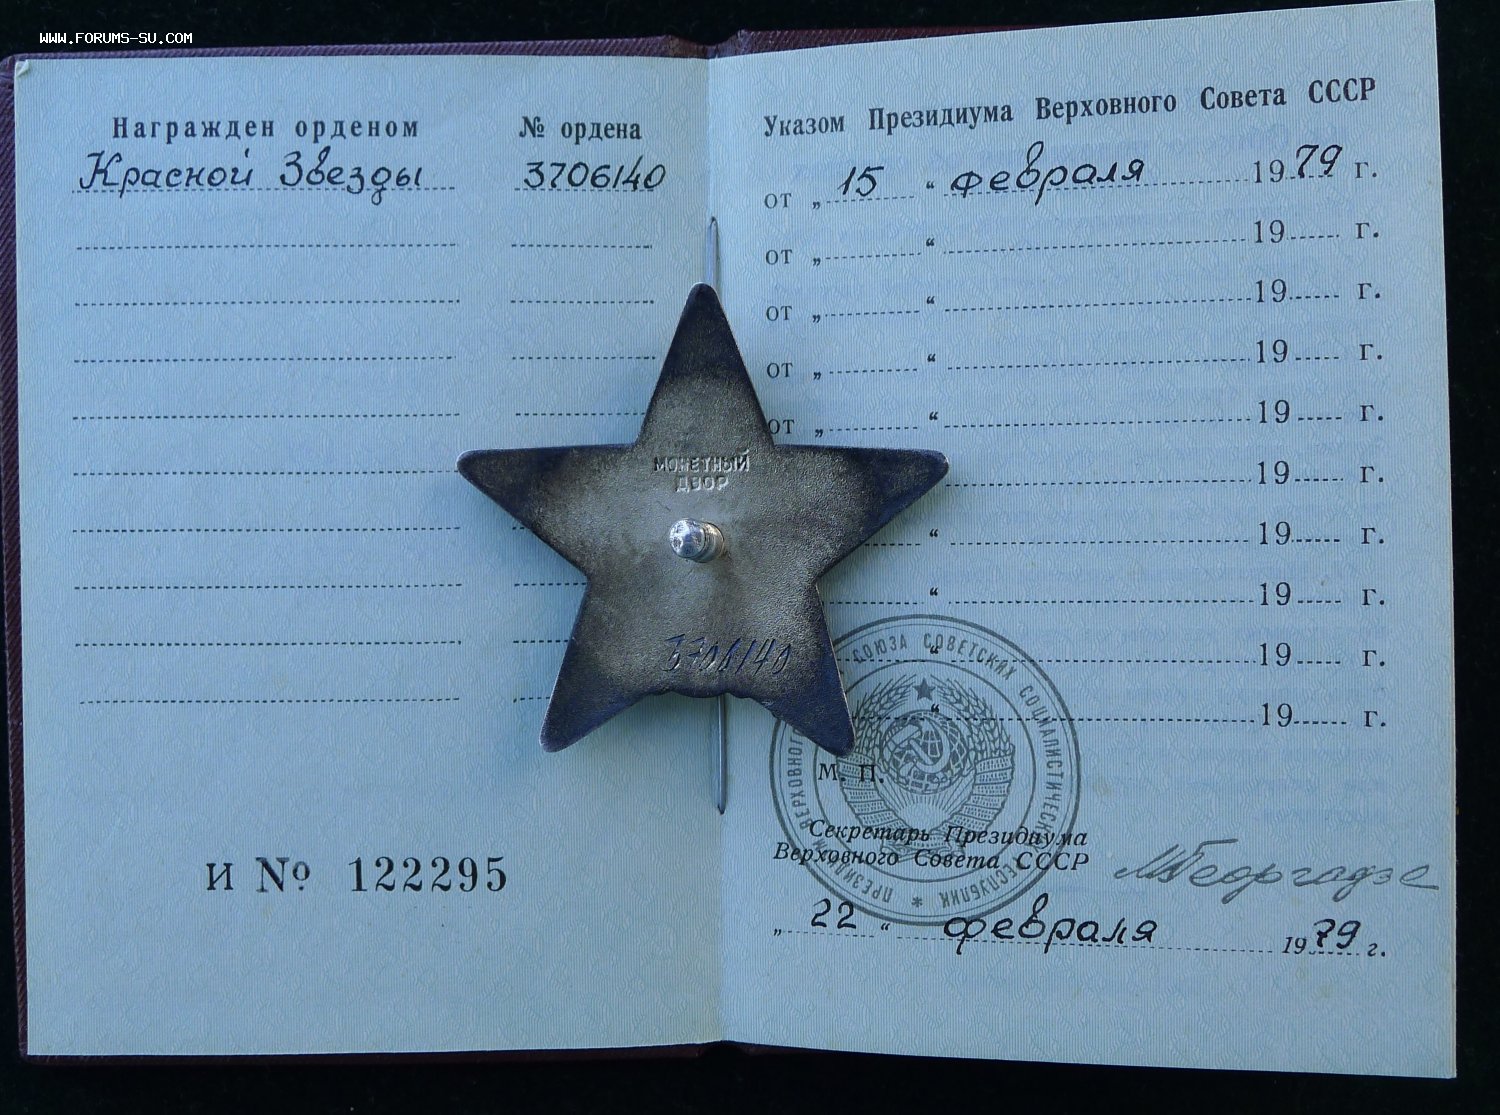 WWW.FORUMS-SU.COM
Награжден орденом № ордена
Красной Звезды 3706140
Указом Президиума Верховного Совета СССР
от „ 15 “ февраля 1979 г.
от „ “ 19 г.
от „ “ 19 г.
от „ “ 19 г.
от „ “ 19 г.
“ 19 г.
“ 19 г.
“ 19 г.
“ 19 г.
“ 19 г.
МОНЕТНЫЙ
ДВОР
3706140
И № 122295
М. П.
ПРЕЗИДИУМ ВЕРХОВНОГО СОЮЗА СОВЕТСКИХ СОЦИАЛИСТИЧЕСКИХ РЕСПУБЛИК
Секретарь Президиума
Верховного Совета СССР
МГеоргадзе
„ 22 “ февраля 1979 г.